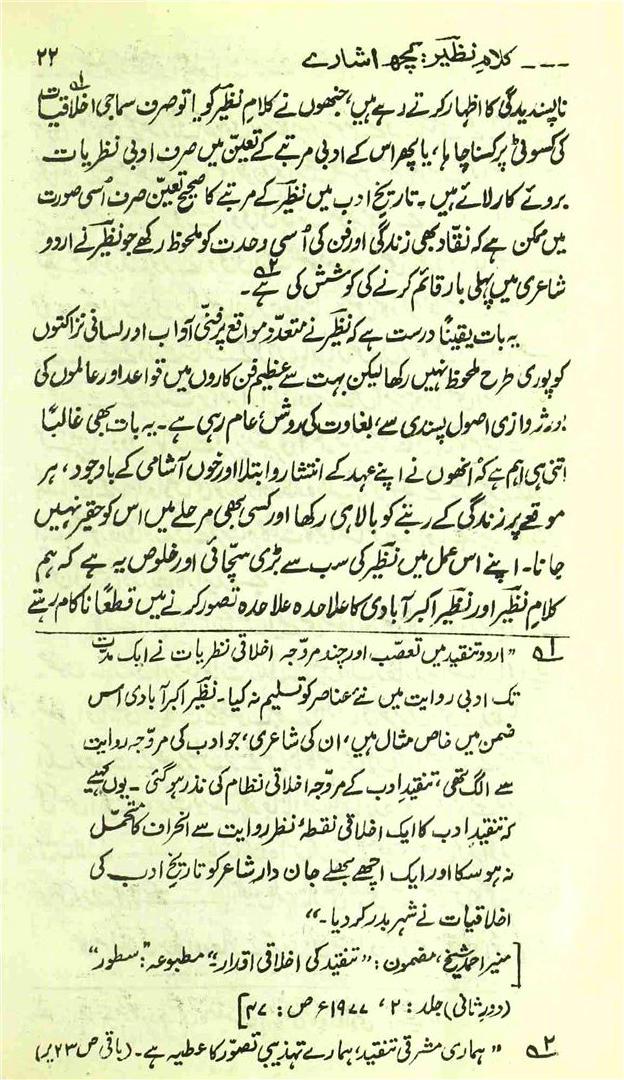 --- کلامِ نظیرؔ: کچھ اشارے ۲۲
ناپسندیدگی کا اظہار کرتے رہے ہیں، جنھوں نے کلامِ نظیرؔ کو یا تو صرف سماجی اخلاقیات ۱؎
کی کسوٹی پر کسنا چاہا، یا پھر اس کے ادبی مرتبے کے تعیّن میں صرف ادبی نظریات
بروئے کار لائے ہیں۔ تاریخِ ادب میں نظیرؔ کے مرتبے کا صحیح تعیّن صرف اُسی صورت
میں ممکن ہے کہ نقّاد بھی زندگی اور فن کی اُسی وحدت کو ملحوظ رکھے جو نظیرؔ نے اردو
شاعری میں پہلی بار قائم کرنے کی کوشش کی ہے ۲؎۔
یہ بات یقیناً درست ہے کہ نظیرؔ نے متعدّد مواقع پر فنّی آداب اور لسانی نزاکتوں
کو پوری طرح ملحوظ نہیں رکھا لیکن بہت سے عظیم فن کاروں میں قواعد اور عالموں کی
بورژوازی اصول پسندی سے، بغاوت کی روشِ عام رہی ہے۔ یہ بات بھی غالباً
اتنی ہی اہم ہے کہ اُنھوں نے اپنے عہد کے انتشار و ابتلا اور خوں آشامی کے باوجود، ہر
موقعے پر زندگی کے رتبے کو بالا ہی رکھا اور کسی بھی مرحلے میں اس کو حقیر نہیں
جانا۔ اپنے اس عمل میں نظیرؔ کی سب سے بڑی سچّائی اور خلوص یہ ہے کہ ہم
کلامِ نظیرؔ اور نظیرؔ اکبر آبادی کا علاحدہ علاحدہ تصور کرنے میں قطعاً ناکام رہتے
۱؎ "اردو تنقید میں تعصّب اور چند مروّجہ اخلاقی نظریات نے ایک مدّت
تک ادبی روایت میں نئے عناصر کو تسلیم نہ کیا۔ نظیرؔ اکبر آبادی اس
ضمن میں خاص مثال ہیں، ان کی شاعری، جو ادب کی مروّجہ روایت
سے الگ تھی، تنقیدِ ادب کے مروّجہ اخلاقی نظام کی نذر ہو گئی ۔ یوں کہیے
کہ تنقیدِ ادب کا ایک اخلاقی نقطۂ نظر روایت سے انحراف کا متحمّل
نہ ہو سکا اور ایک اچھے بھلے جان دار شاعر کو تاریخِ ادب کی
اخلاقیات نے شہر بدر کر دیا۔"
[منیر احمد شیخ، مضمون: "تنقید کی اخلاقی اقدار۔" مطبوعہ: "سطور"
(دورِ ثانی) جلد: ۲، ۱۹۷۷ء ص: ۴۷]
۲؎ "ہماری مشرقی تنقید، ہمارے تہذیبی تصوّر کا عطیہ ہے۔ (باقی ص ۲۳ پر)